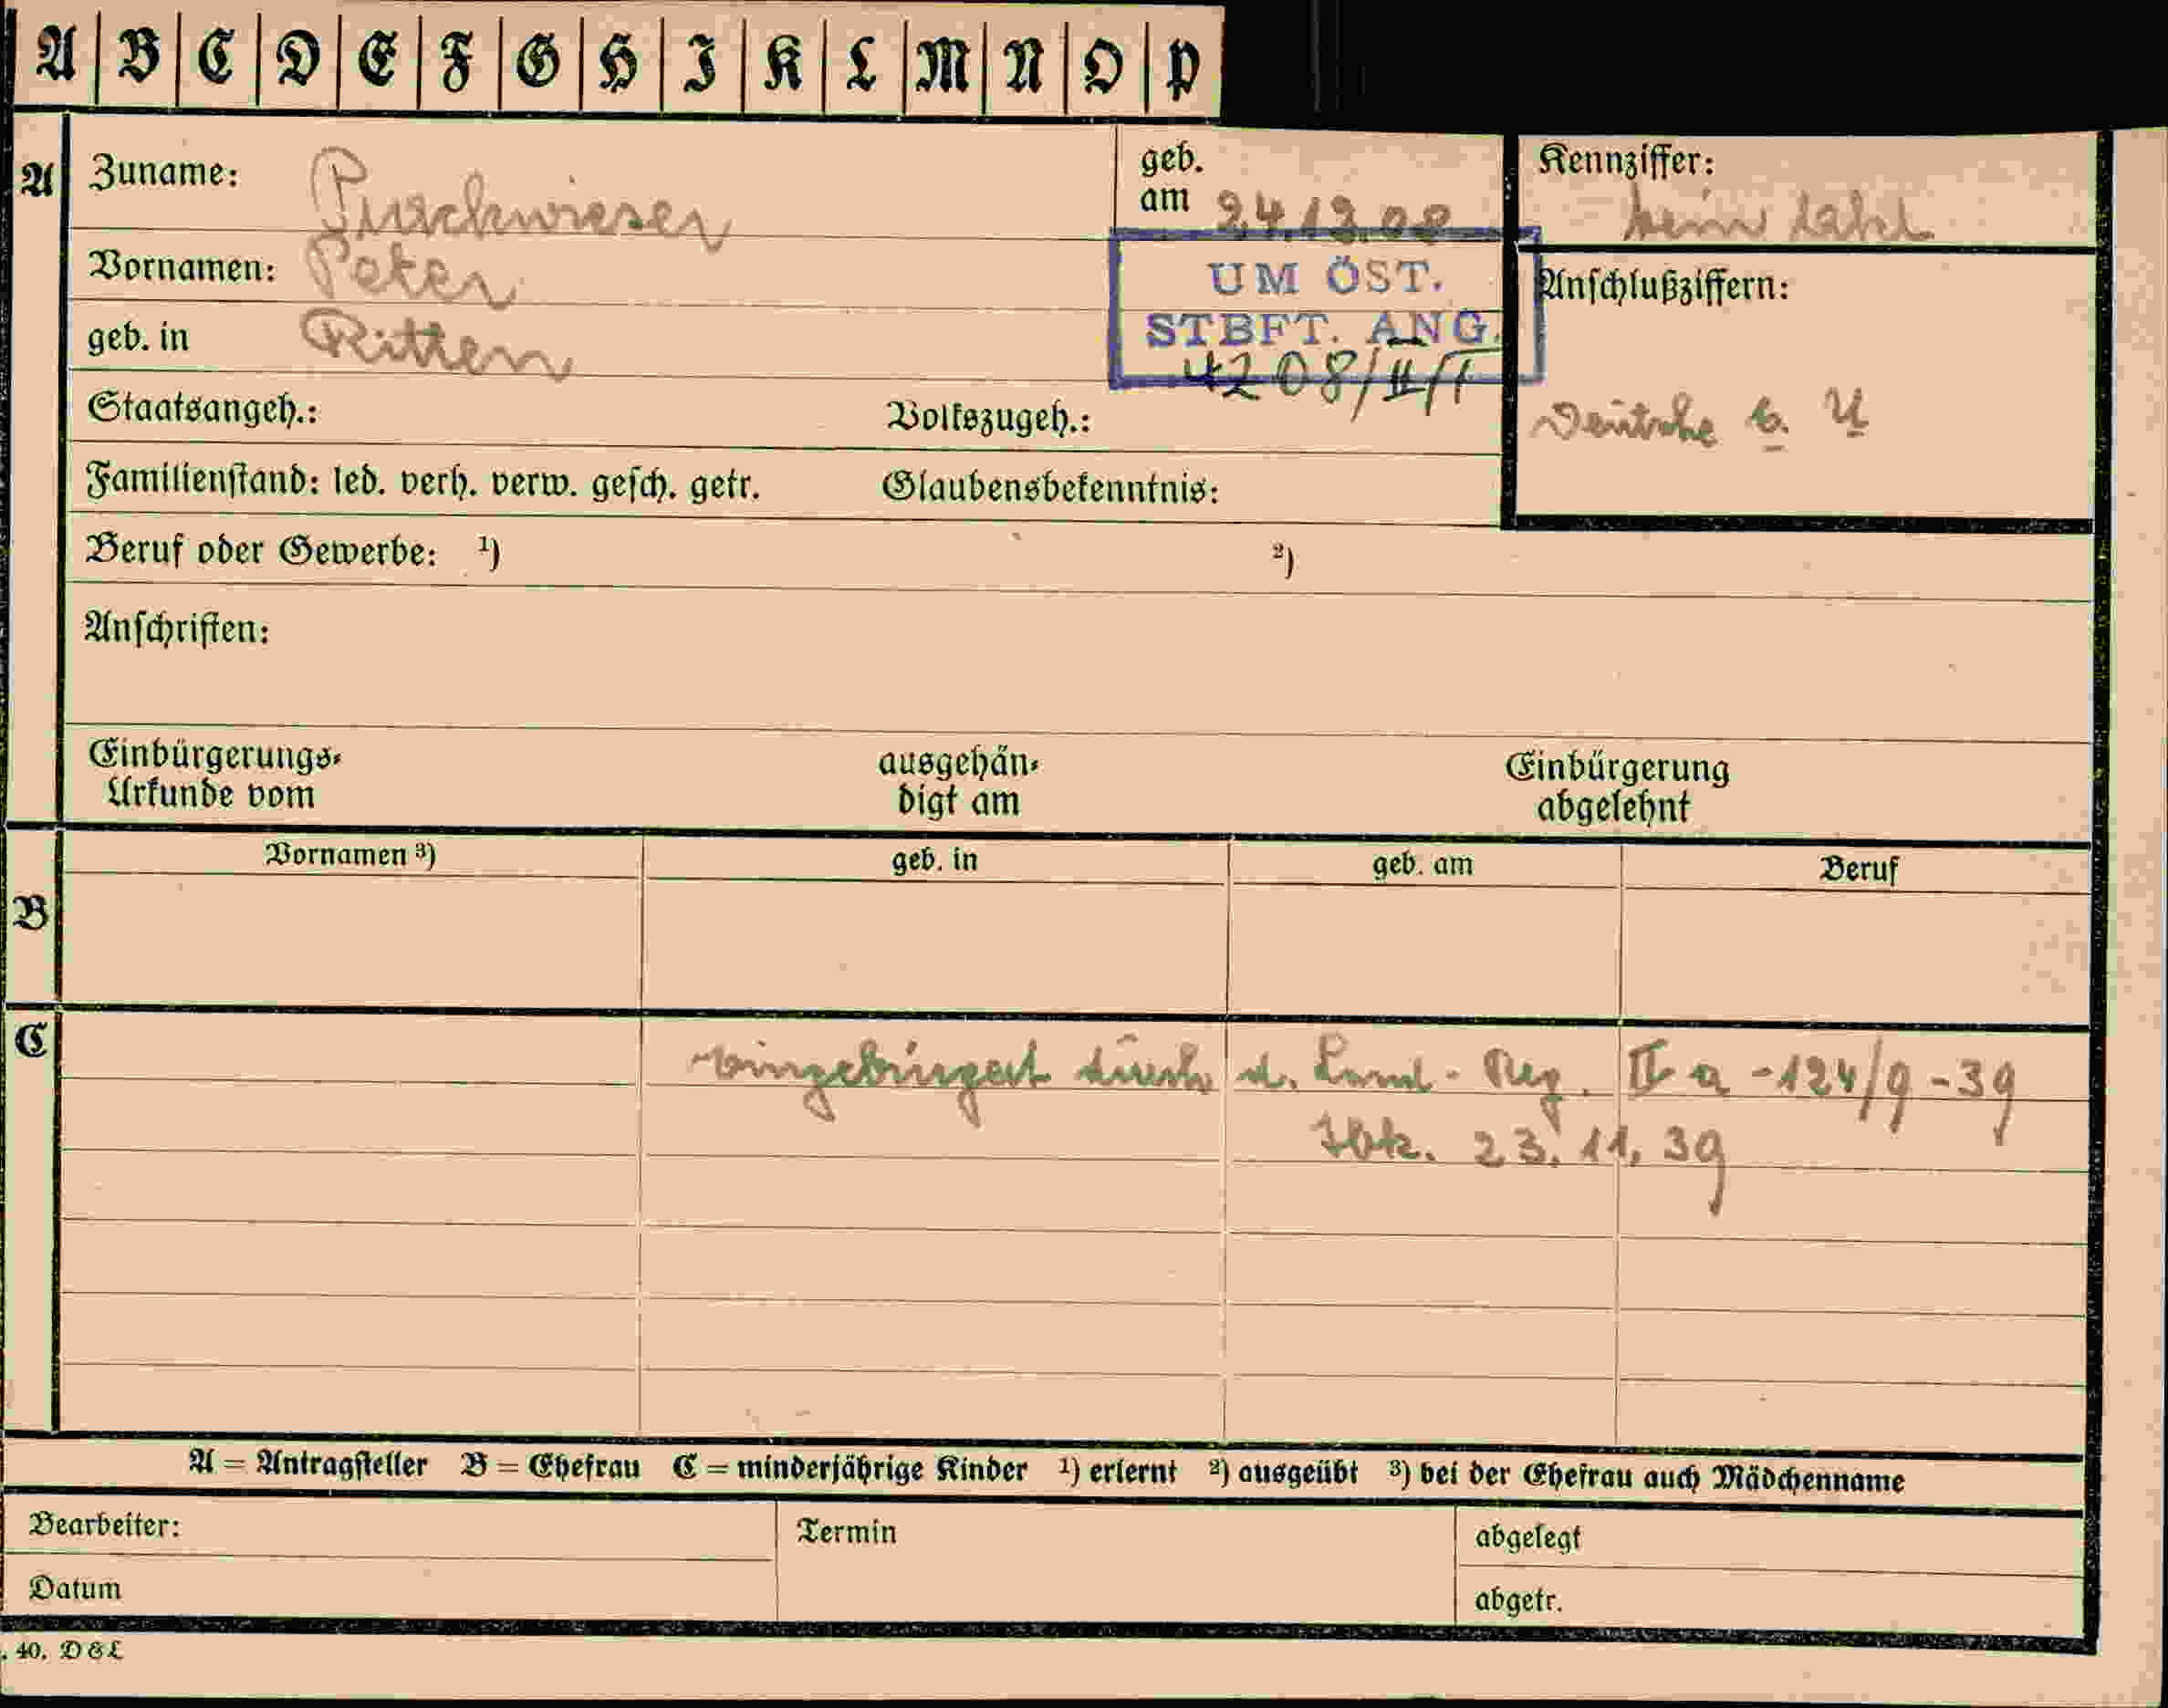 A B C D E F G H I K L M N O P
A Zuname: geb. am 24.12.08 Kennziffer:
Vornamen: Peter
UM ÖST.
STBFT. ANG.
4208/II/I
Anschlußziffern:
geb. in Ritten
Staatsangeh.: Volkszugeh.: Deutsche b. U
Familienstand: led. verh. verw. gesch. getr. Glaubensbekenntnis:
Beruf oder Gewerbe: ¹) ²)
Anschriften:
Einbürgerungs- ausgehän- Einbürgerung
Urkunde vom digt am abgelehnt
B Vornamen ³) geb. in geb. am Beruf
C eingebürgert durch d. Land. Reg. II a - 124/9 - 39
Ibk. 23. 11. 39
A = Antragsteller B = Ehefrau C = minderjährige Kinder ¹) erlernt ²) ausgeübt ³) bei der Ehefrau auch Mädchenname
Bearbeiter: Termin abgelegt
Datum abgetr.
. 40. D&L